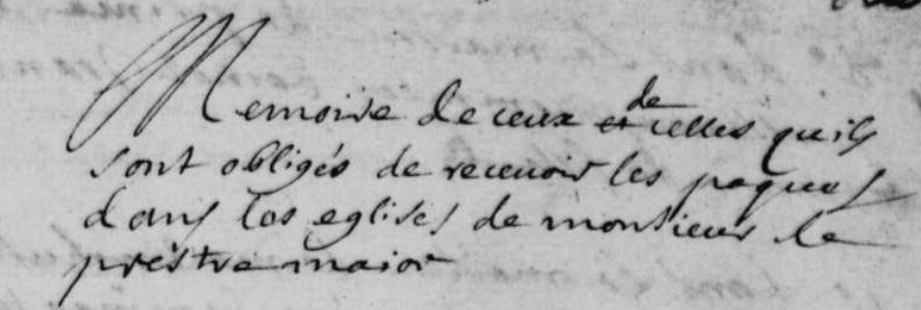 Memoire de ceux et de celles quils
sont obligés de recevoir les paques
dans les eglises de monsieur le
prestre maior